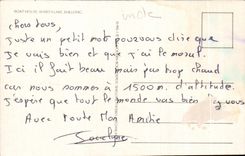 chers tous,
Juste un petit mot pour vous dire que
Je vais bien et que j'ai le moral.
Ici il fait beau mais pas trop chaud
car nous sommes à 1500 m d'altitude.
J'espère que tout le monde vas bien
Avec Toute Mon Amitié
Jocelyne